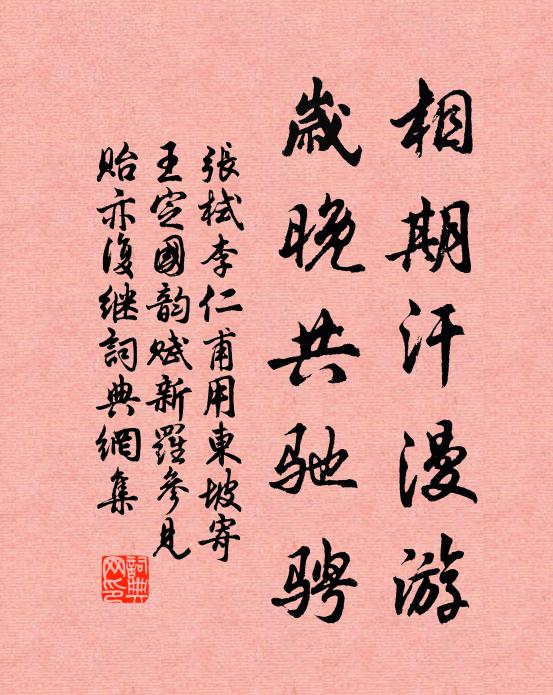 相期汗漫游
歲晚共驰骋
張栻李仁甫用東坡寄
王定國韵赋新羅參見
贻亦復继詞典網集
詞典
网印